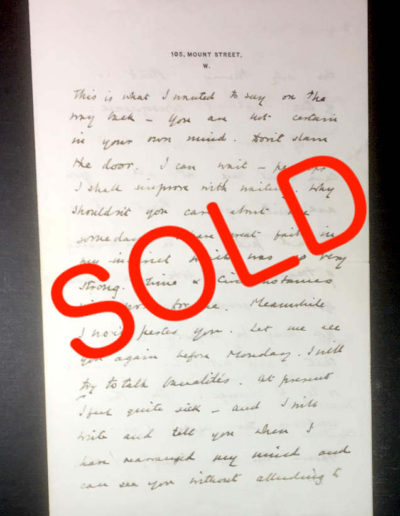 105, MOUNT STREET,
W.
This is what I wanted to say on the
way back – You are not certain
in your own mind. Don't slam
the door. I can wait –
I shall improve with waiting. Why
shouldn't you care about me
someday. I have great faith in
my instinct which was so very
strong. Time & Circumstances
for me. Meanwhile
I won't pester you. Let me see
you again before Monday. I will
try to talk banalités. At present
I feel quite sick – and I will
write and tell you when I
have rearranged my mind and
can see you without alluding to
SOLD